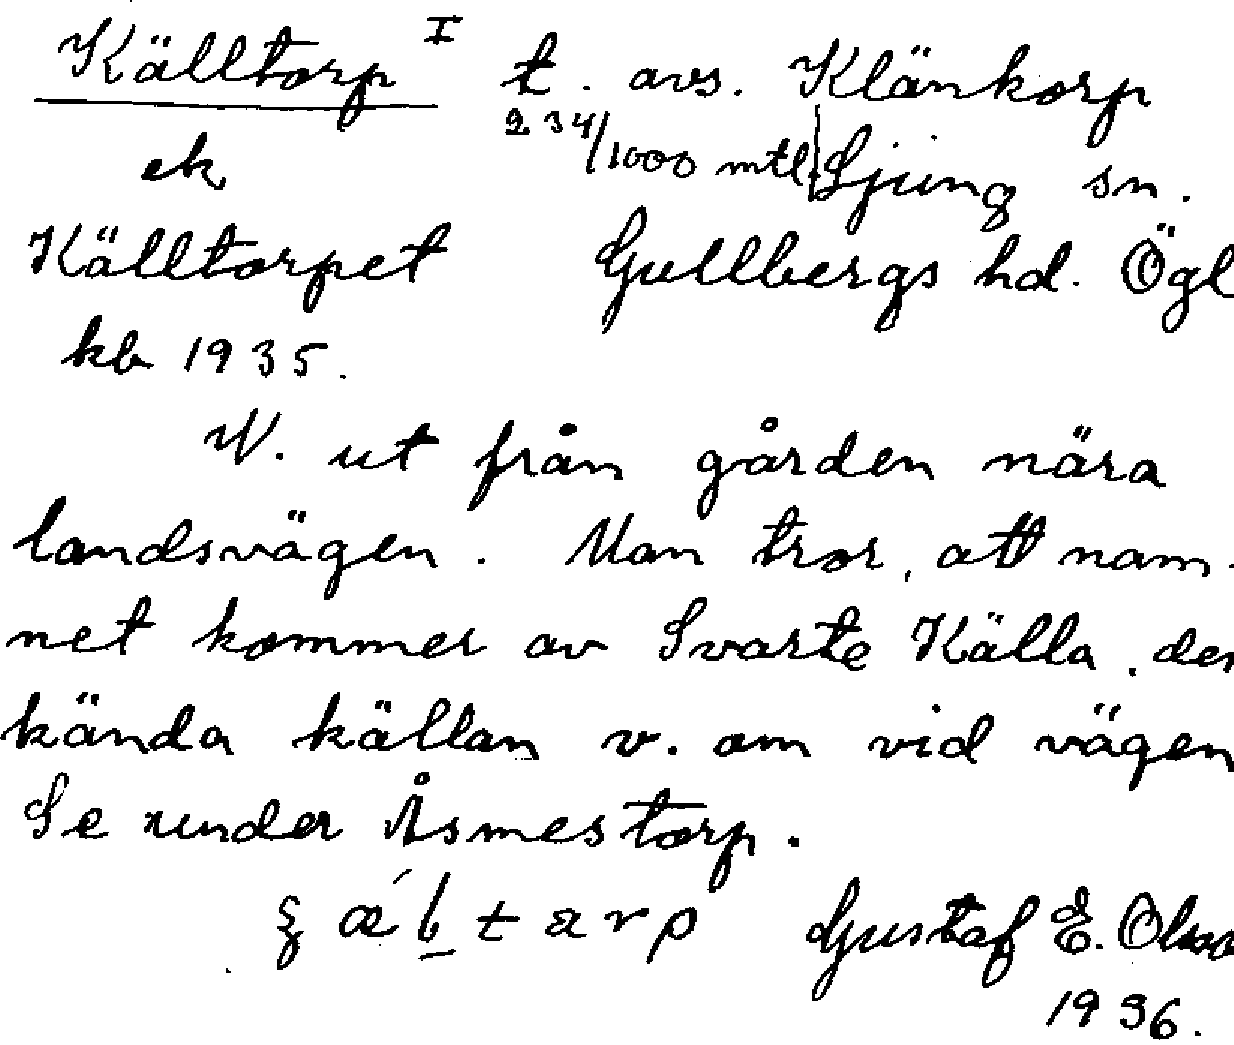 Källtorp I t. avs. Klänkorp
ek 234/1000 mtl. Ljung sn.
Källtorpet Gullbergs hd. Ögl
kb 1935.
N. ut från gården nära
landsvägen. Man tror, att nam-
net kommer av Svarte Källa, den
kända källan v. om vid vägen
Se under Åsmestorp.
Gustaf E. Olsso
1936.